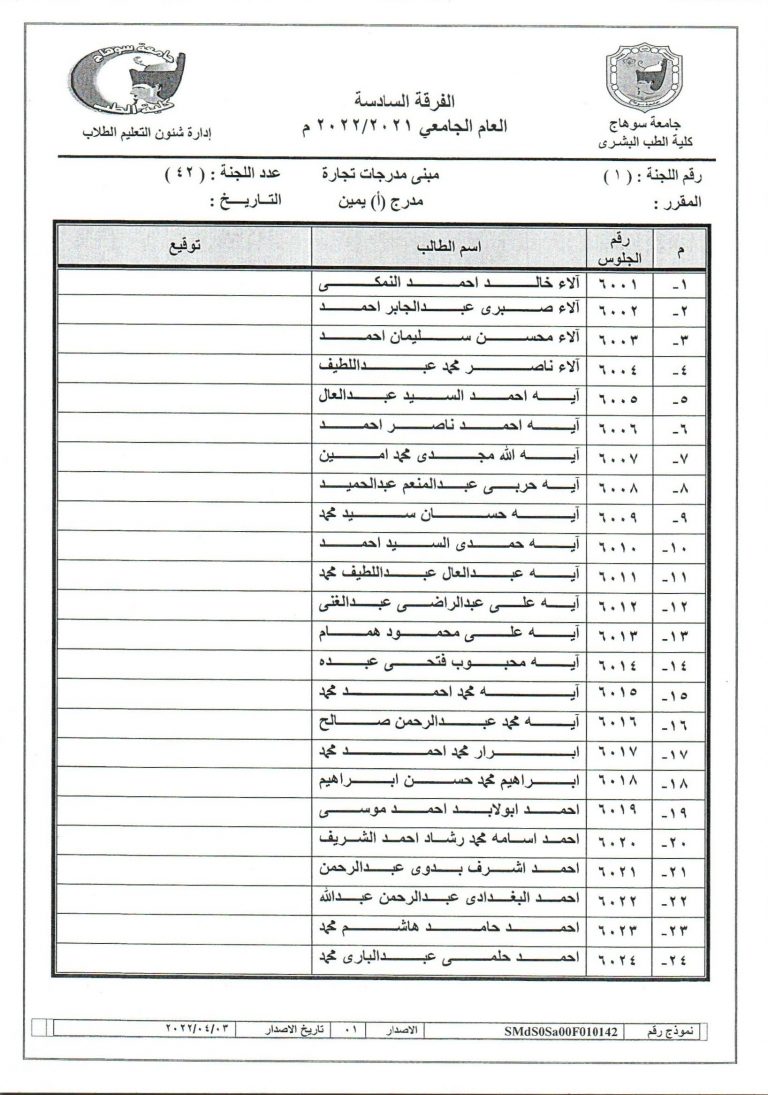 جامعة سوهاج
كلية الطب البشرى
الفرقة السادسة
العام الجامعي ٢٠٢٢/٢٠٢١ م
جامعة سوهاج
كلية الطب
إدارة شئون التعليم الطلاب
رقم اللجنة : ( ١ ) مبنى مدرجات تجارة عدد اللجنة : ( ٤٢ )
المقرر : مدرج (أ) يمين التاريخ :
م رقم الجلوس اسم الطالب توقيع
١- ٦٠٠١ آلاء خالد احمد النمكى
٢- ٦٠٠٢ آلاء صبرى عبدالجابر احمد
٣- ٦٠٠٣ آلاء محسن سليمان احمد
٤- ٦٠٠٤ آلاء ناصر محمد عبداللطيف
٥- ٦٠٠٥ آيه احمد السيد عبدالعال
٦- ٦٠٠٦ آيه احمد ناصر احمد
٧- ٦٠٠٧ آيه الله مجدى محمد امين
٨- ٦٠٠٨ آيه حربى عبدالمنعم عبدالحميد
٩- ٦٠٠٩ آيه حسان سيد محمد
١٠- ٦٠١٠ آيه حمدى السيد احمد
١١- ٦٠١١ آيه عبدالعال عبداللطيف محمد
١٢- ٦٠١٢ آيه على عبدالراضى عبدالغنى
١٣- ٦٠١٣ آيه على محمود همام
١٤- ٦٠١٤ آيه محبوب فتحى عبده
١٥- ٦٠١٥ آيه محمد احمد محمد
١٦- ٦٠١٦ آيه محمد عبدالرحمن صالح
١٧- ٦٠١٧ ابرار محمد احمد محمد
١٨- ٦٠١٨ ابراهيم محمد حسن ابراهيم
١٩- ٦٠١٩ احمد ابولابد احمد موسى
٢٠- ٦٠٢٠ احمد اسامه محمد رشاد احمد الشريف
٢١- ٦٠٢١ احمد اشرف بدوى عبدالرحمن
٢٢- ٦٠٢٢ احمد البغدادى عبدالرحمن عبدالله
٢٣- ٦٠٢٣ احمد حامد هاشم محمد
٢٤- ٦٠٢٤ احمد حلمى عبدالبارى محمد
نموذج رقم SMdS0Sa00F010142 الاصدار ٠١ تاريخ الاصدار ٢٠٢٢/٠٤/٠٣